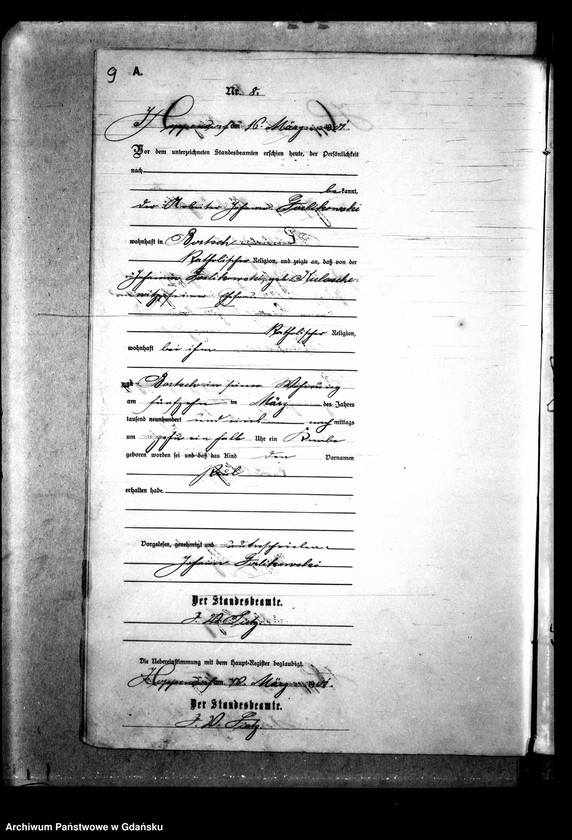 9 A.
Nr. 8.
Hoppendorf am 16. März 1901.
Vor dem unterzeichneten Standesbeamten erschien heute, der Persönlichkeit
nach
bekannt,
der Arbeiter Johann
wohnhaft in Bortsch
Katholischer Religion, und zeigte an, daß von der
Johanna geb.
Ehefrau
Katholischer Religion,
wohnhaft bei ihm
zu Bortsch in seiner Wohnung
am fünfzehn ten März des Jahres
tausend neunhundert und eins nach mittags
um ein halb Uhr ein Knabe
geboren worden sei und daß das Kind den Vornamen
Paul
erhalten habe.
Vorgelesen, genehmigt und unterschrieben
Johann
Der Standesbeamte.
J. W.
Die Uebereinstimmung mit dem Haupt-Register beglaubigt.
Hoppendorf am März 1901.
Der Standesbeamte.
J. W.
Archiwum Państwowe w Gdańsku